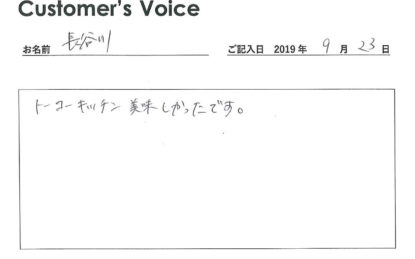 Customer's Voice
お名前 長谷川 ご記入日 2019年 9月 23日
トーコーキッチン美味しかったです。